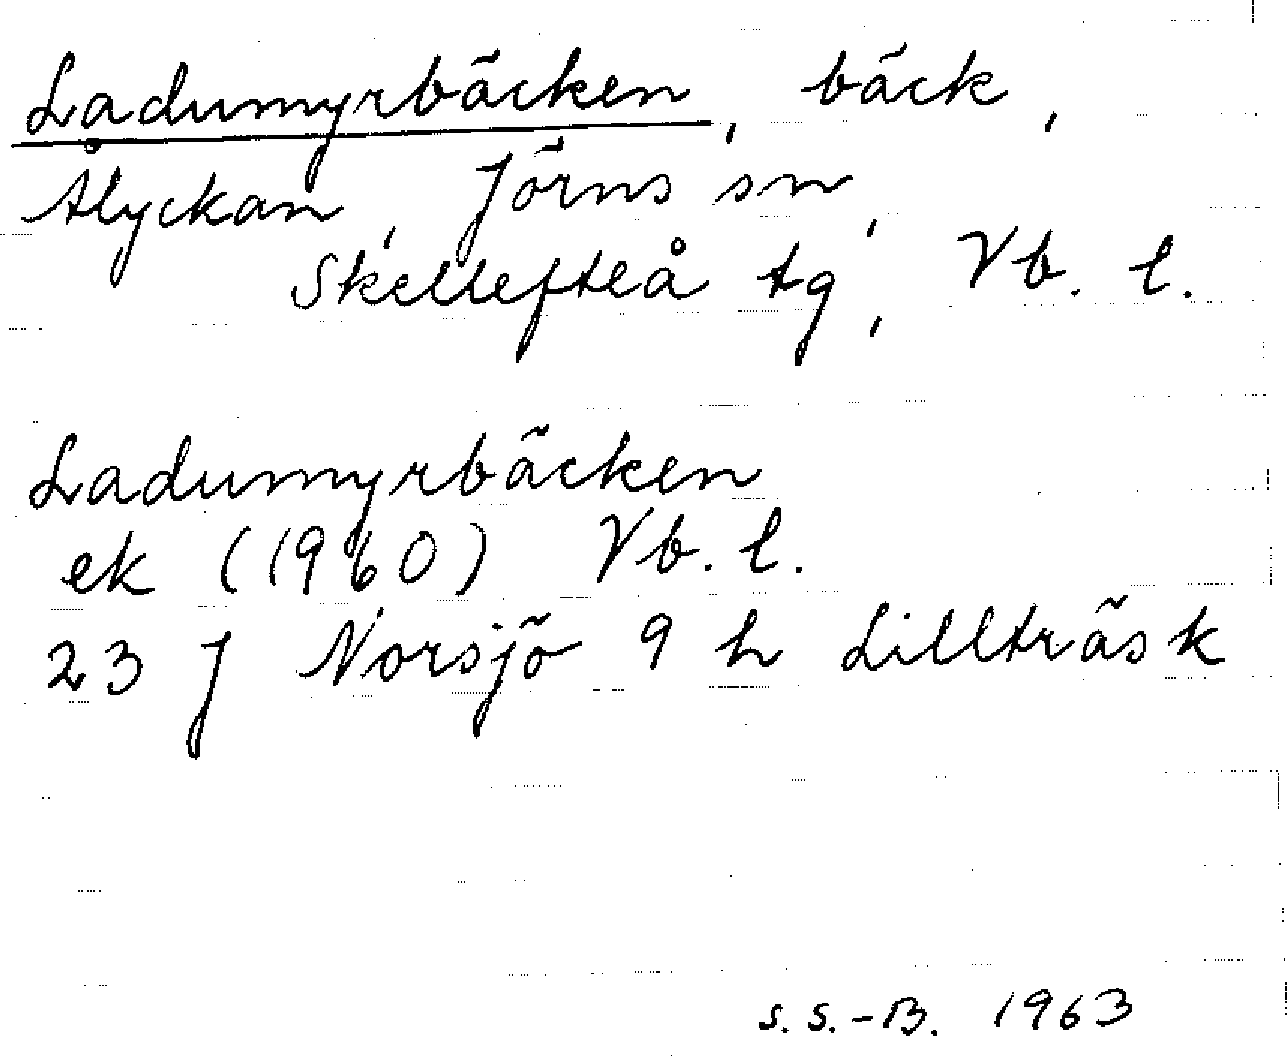 Ladumyrbäcken, bäck,
Ålyckan, Jörns sn,
Skellefteå tg, Vb. l.
Ladumyrbäcken
ek (1960) Vb. l.
23 J Norsjö 9 h Lillträsk
S. S.-B. 1963